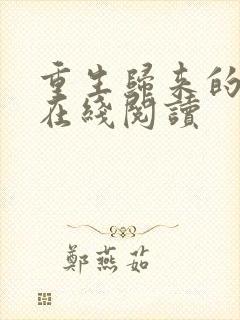 重生歸來的
在綫閱讀
鄭燕茹